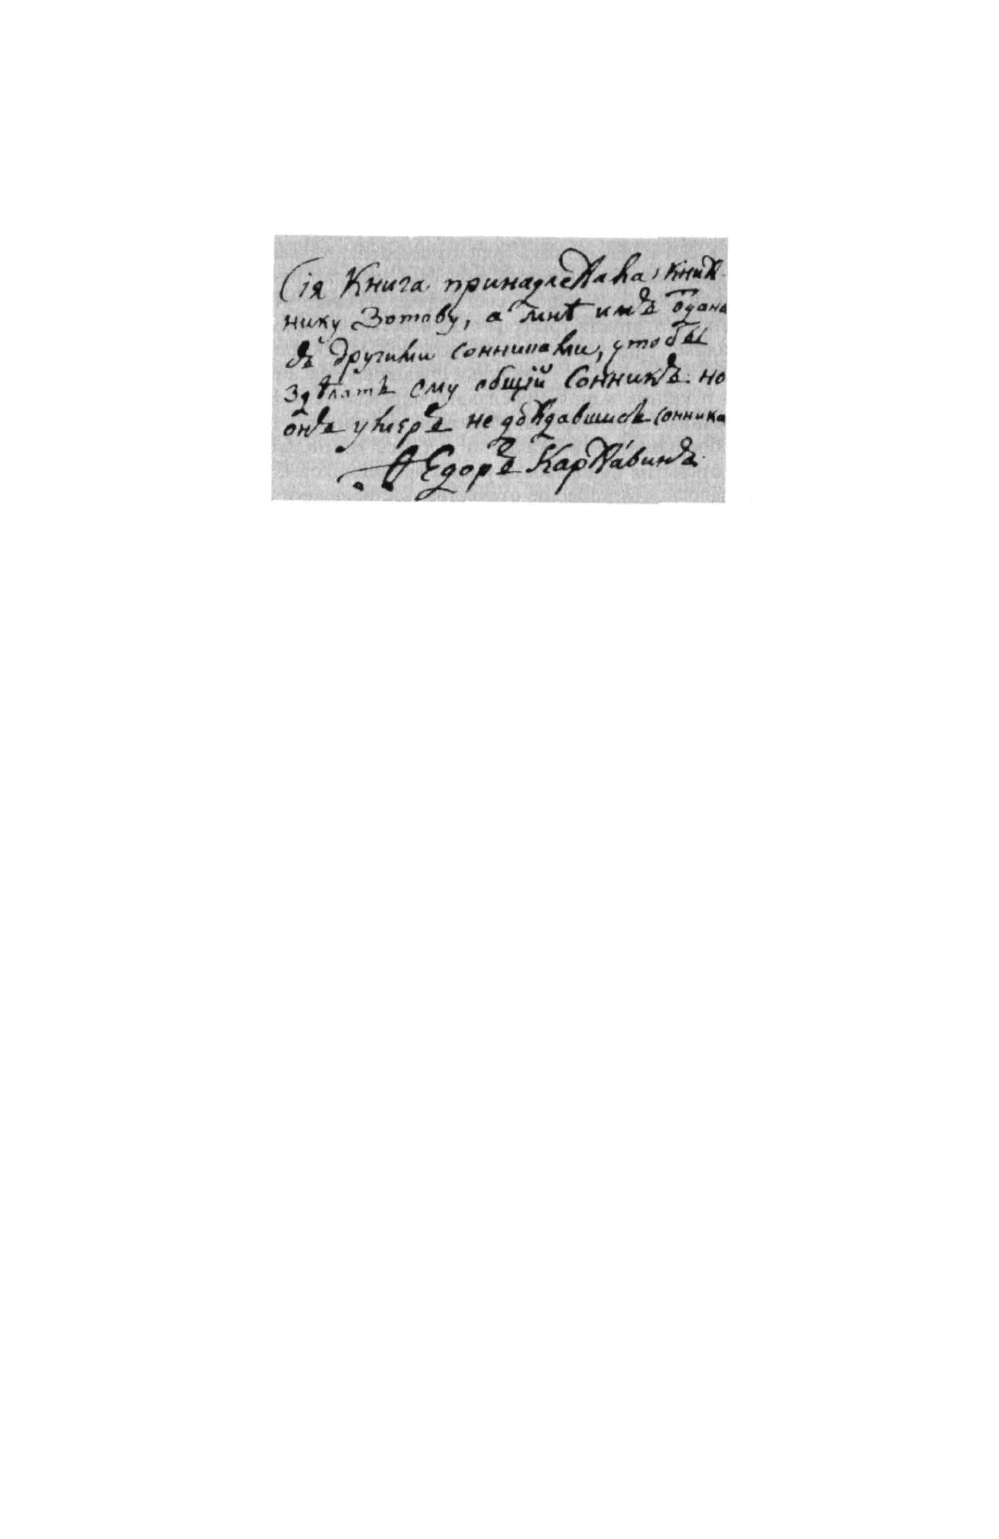 Сія Книга принадлежала книж-
нику Зотову, а мнѣ имъ ѿдана
съ другими сонниками, чтобы
здѣлать ему общій Сонникъ. но
онъ умеръ не дождавшись сонника
Ѳедоръ Каржавинъ.